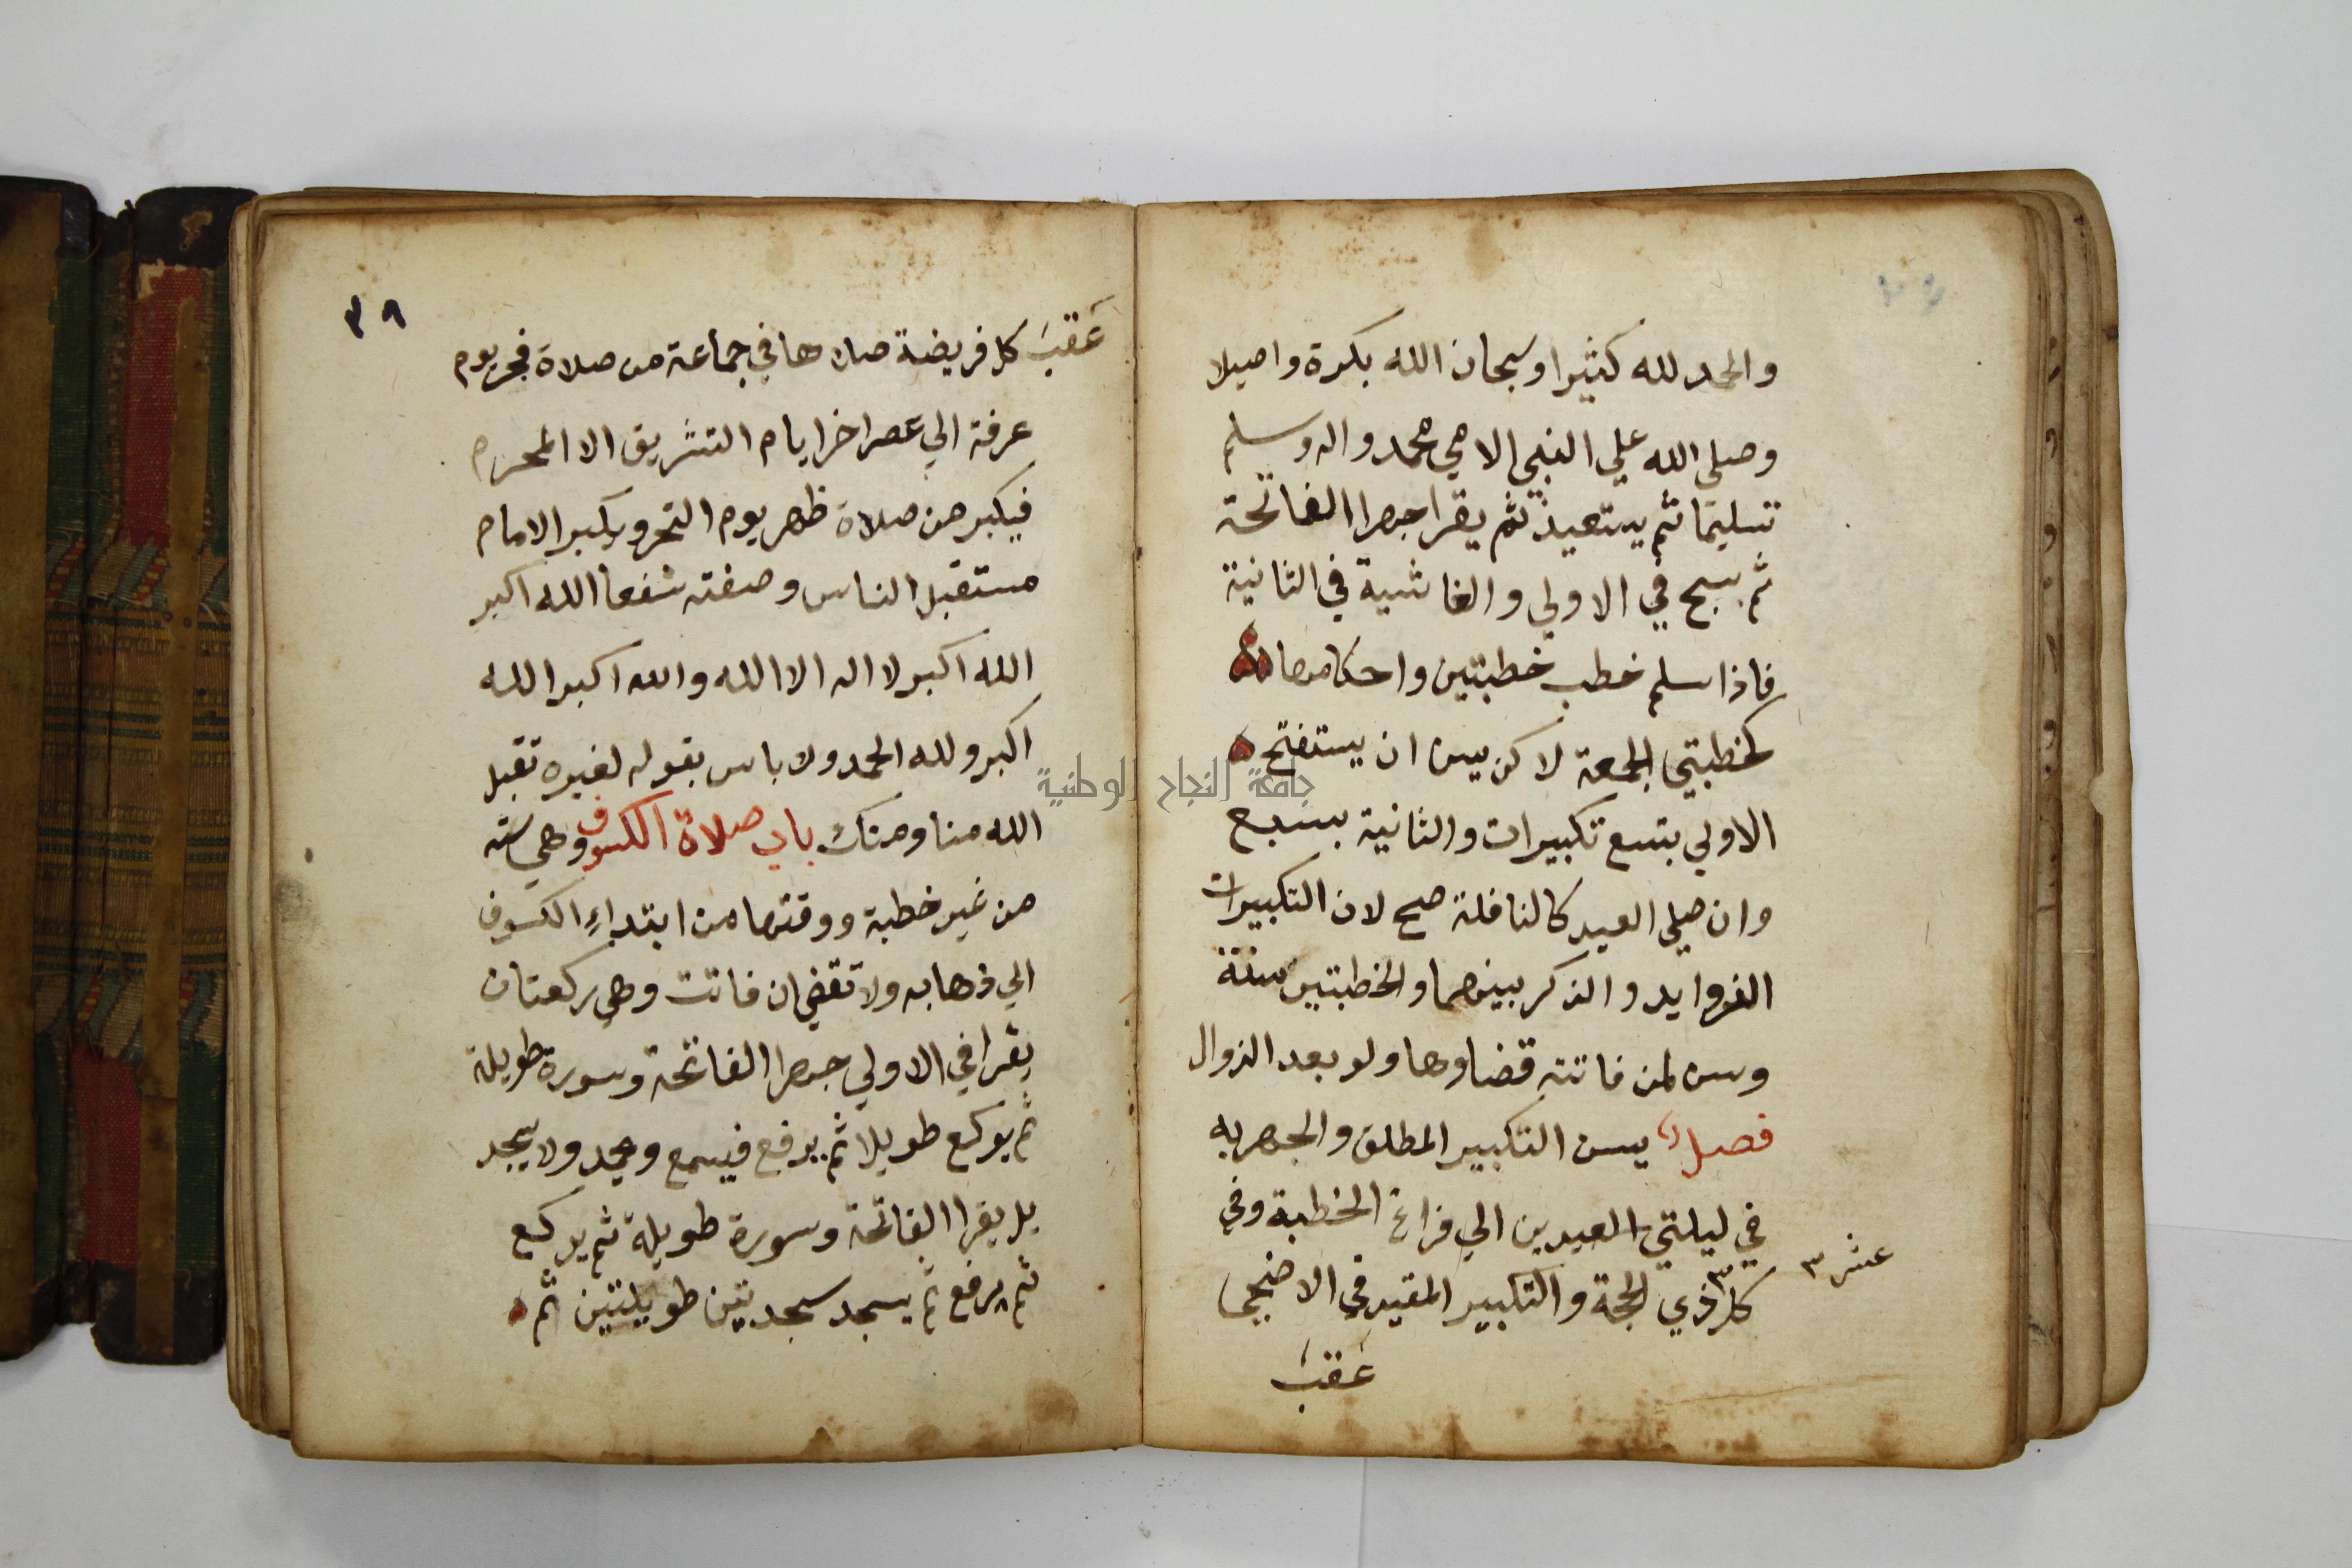 والحمد لله كثيرا وسبحان الله بكرة واصيلا
وصلى الله علي النبي الامي محمد واله وسلم
تسليمًا ثم يستعيذ ثم يقرا جهرا الفاتحة
ثم بسبح في الاولي والغاشية في الثانية
فاذا سلم خطب خطبتين واحكامهما
كخطبتي الجمعة لاكن يسن ان يستفتح
الاولي بتسع تكبيرات والثانية بسبع
وان صلي العيد كالنافلة صح لان التكبيرات
الزوايد والذكر بينهما والخطبتين سنة
وسن لمن فاتته قضاوها ولو بعد الزوال
فصل يسن التكبير المطلق والجهر به
في ليلتي العيدين الي فراغ الخطبة وفي
كل ٣ ذي الحجة والتكبير المقيد في الاضحي
عشر ٣
عَقبَ
٣٨
عَقبَ كل فريضة صلاها في جماعة من صلاة فجر يوم
عرفة الي عصر اخر ايام التشريق الا المحرم
فيكبر من صلاة ظهر يوم النحر ويكبر الامام
مستقبل الناس وصفته شفعا الله اكبر
الله اكبر لا اله الا الله والله اكبر الله
اكبر ولله الحمد ولا باس بقوله لغيره تقبل
الله منا ومنك باب صلاة الكسوف وهي سنة
من غير خطبة ووقتها من ابتداء الكسوف
الي ذهابه ولا تقضي ان فاتت وهي ركعتان
يقرا في الاولي جهرا الفاتحة وسورة طويلة
ثم يركع طويلا ثم يرفع فيسمع ويحمد ولا يسجد
بل يقرا الفاتحة وسورة طويلة ثم يركع
ثم يرفع ثم يسجد سجدتين طويلتين ثم
جامعة النجاح الوطنية